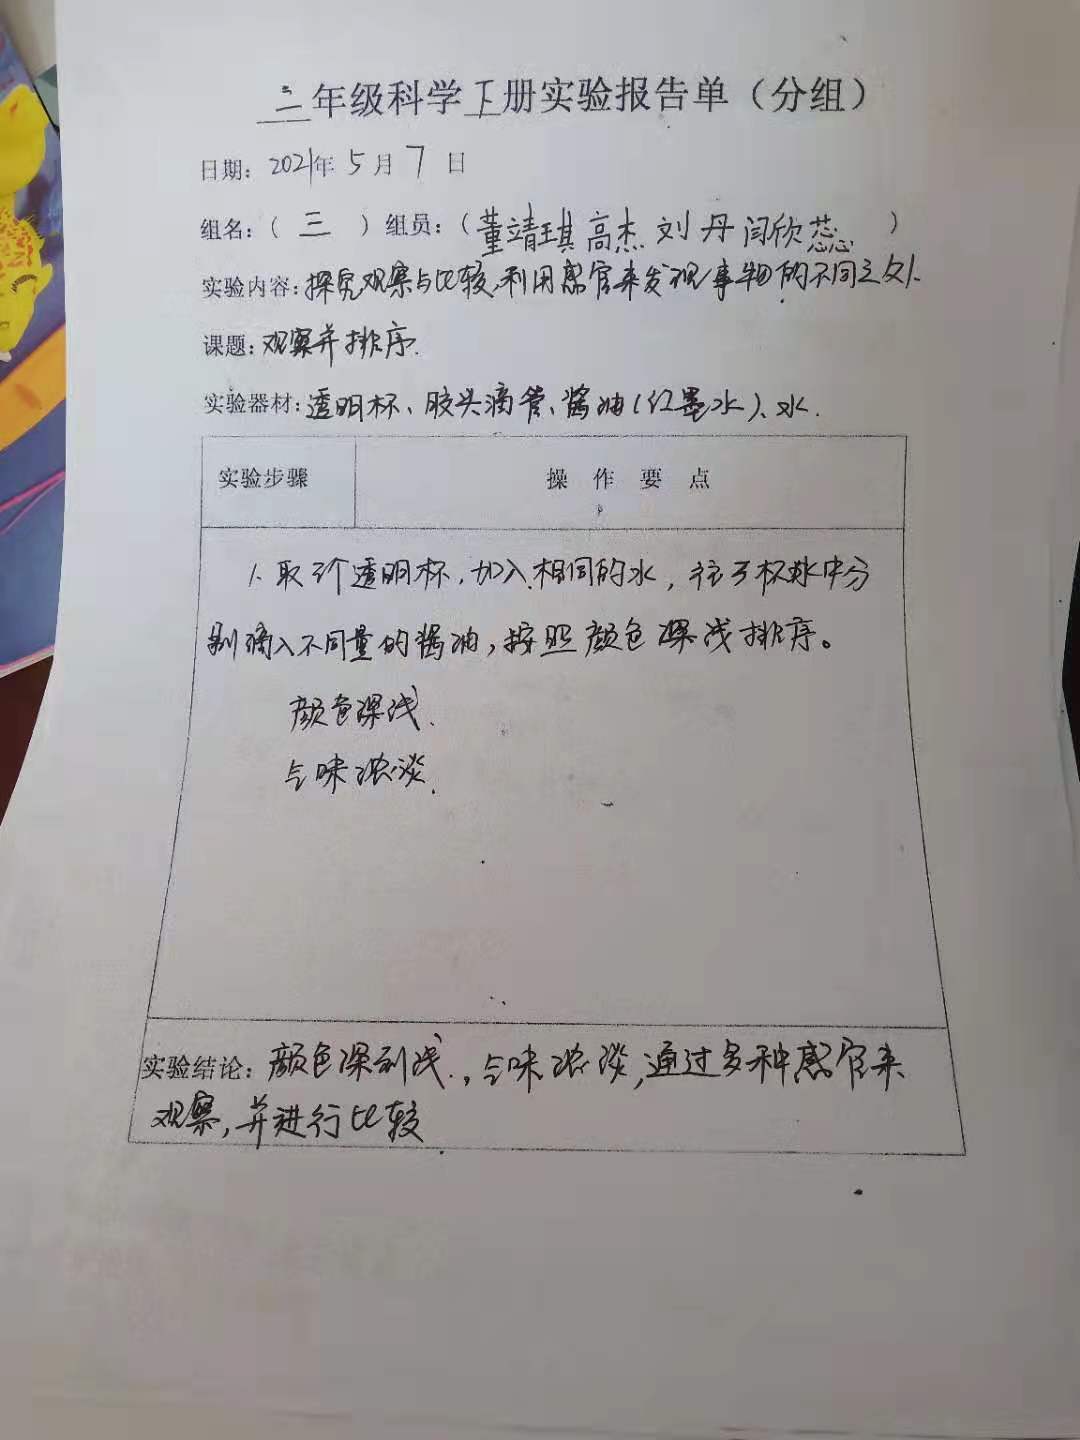 二年级科学下册实验报告单（分组）
日期：2021年5月7日
组名：（三）组员：（董靖琪 高杰 刘丹 闫欣蕊）
实验内容：探究观察与比较，利用感官来发现事物的不同之处。
课题：观察并排序.
实验器材：透明杯、胶头滴管、酱油(红墨水)、水.
实验步骤 操作要点
1.取3个透明杯，加入相同的水，往3杯水中分
别滴入不同量的酱油，按照颜色深浅排序。
颜色深浅.
气味浓淡.
实验结论：颜色深到浅.，气味浓淡，通过多种感官来
观察，并进行比较